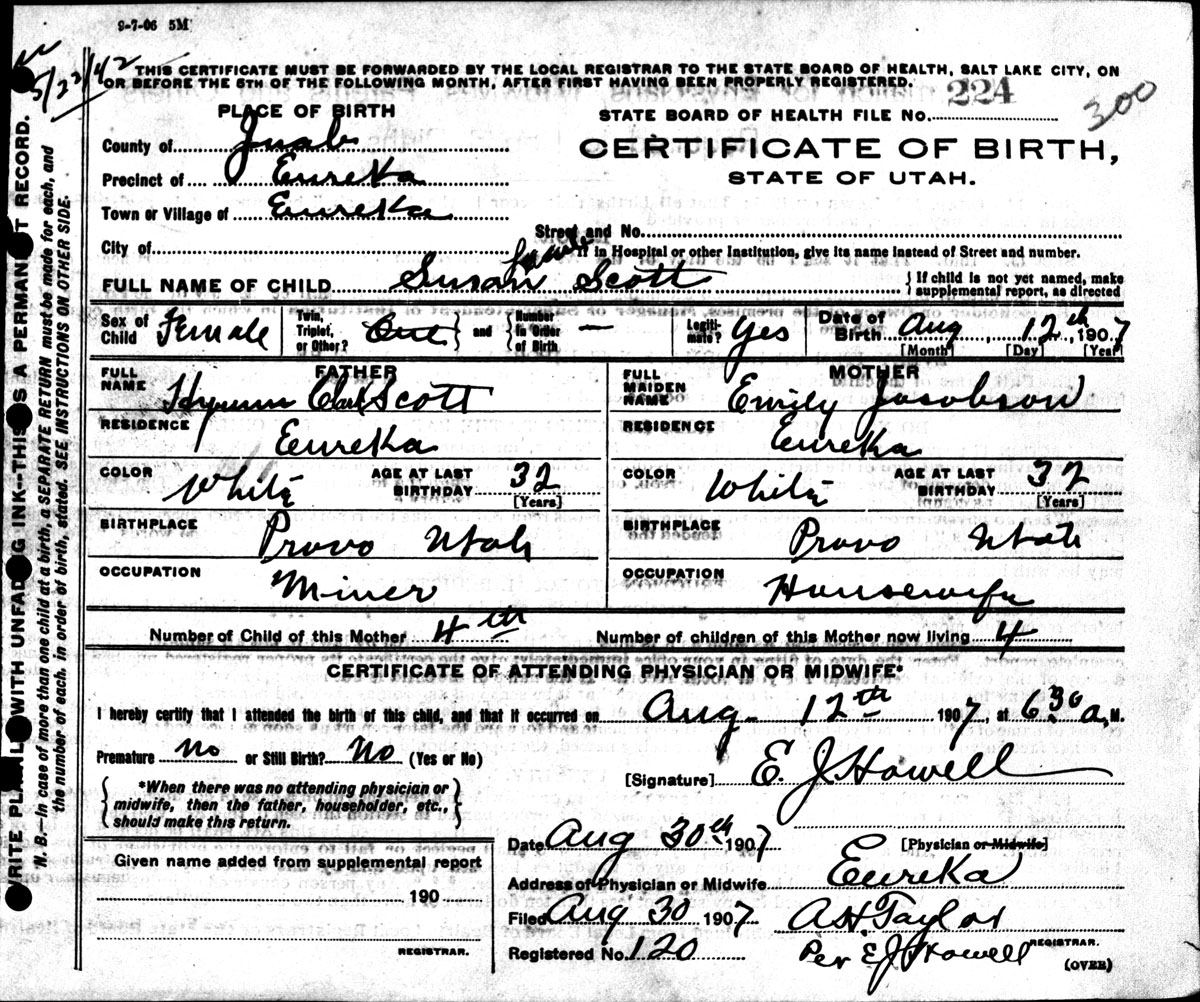 9-7-06 5M
5/22/42
THIS CERTIFICATE MUST BE FORWARDED BY THE LOCAL REGISTRAR TO THE STATE BOARD OF HEALTH, SALT LAKE CITY, ON
OR BEFORE THE 5TH OF THE FOLLOWING MONTH, AFTER FIRST HAVING BEEN PROPERLY REGISTERED.
224
300
PLACE OF BIRTH
STATE BOARD OF HEALTH FILE NO.
County of Juab
CERTIFICATE OF BIRTH,
Precinct of Eureka
STATE OF UTAH.
Town or Village of Eureka
Street and No.
City of
If in Hospital or other Institution, give its name instead of Street and number.
FULL NAME OF CHILD Susan Scott
{If child is not yet named, make
supplemental report, as directed
Sex of Child Female
Twin, Triplet, or Other? } and { Number in Order of Birth —
Legitimate? Yes
Date of Birth Aug 12th, 1907
[Month] [Day] [Year]
FATHER
FULL NAME Hyrum Clark Scott
RESIDENCE Eureka
COLOR White AGE AT LAST BIRTHDAY 32
[Years]
BIRTHPLACE Provo Utah
OCCUPATION Miner
MOTHER
FULL MAIDEN NAME Emily Jacobson
RESIDENCE Eureka
COLOR White AGE AT LAST BIRTHDAY 32
[Years]
BIRTHPLACE Provo Utah
OCCUPATION Housewife
Number of Child of this Mother 4th Number of children of this Mother now living 4
CERTIFICATE OF ATTENDING PHYSICIAN OR MIDWIFE*
I hereby certify that I attended the birth of this child, and that it occurred on Aug 12th 1907, at 6 30 a, M.
Premature no or Still Birth? No (Yes or No)
[Signature] E. J. Howell
{*When there was no attending physician or
midwife, then the father, householder, etc.,
should make this return.}
[Physician or Midwife]
Date Aug 30th 1907
Given name added from supplemental report
190
REGISTRAR.
Address of Physician or Midwife Eureka
Filed Aug 30 1907 A H Taylor
REGISTRAR.
Registered No. 120 Per E J Howell
(OVER)
WRITE PLAINLY WITH UNFADING INK—THIS IS A PERMANENT RECORD.
N. B.—In case of more than one child at a birth, a SEPARATE RETURN must be made for each, and
the number of each, in order of birth, stated. SEE INSTRUCTIONS ON OTHER SIDE.